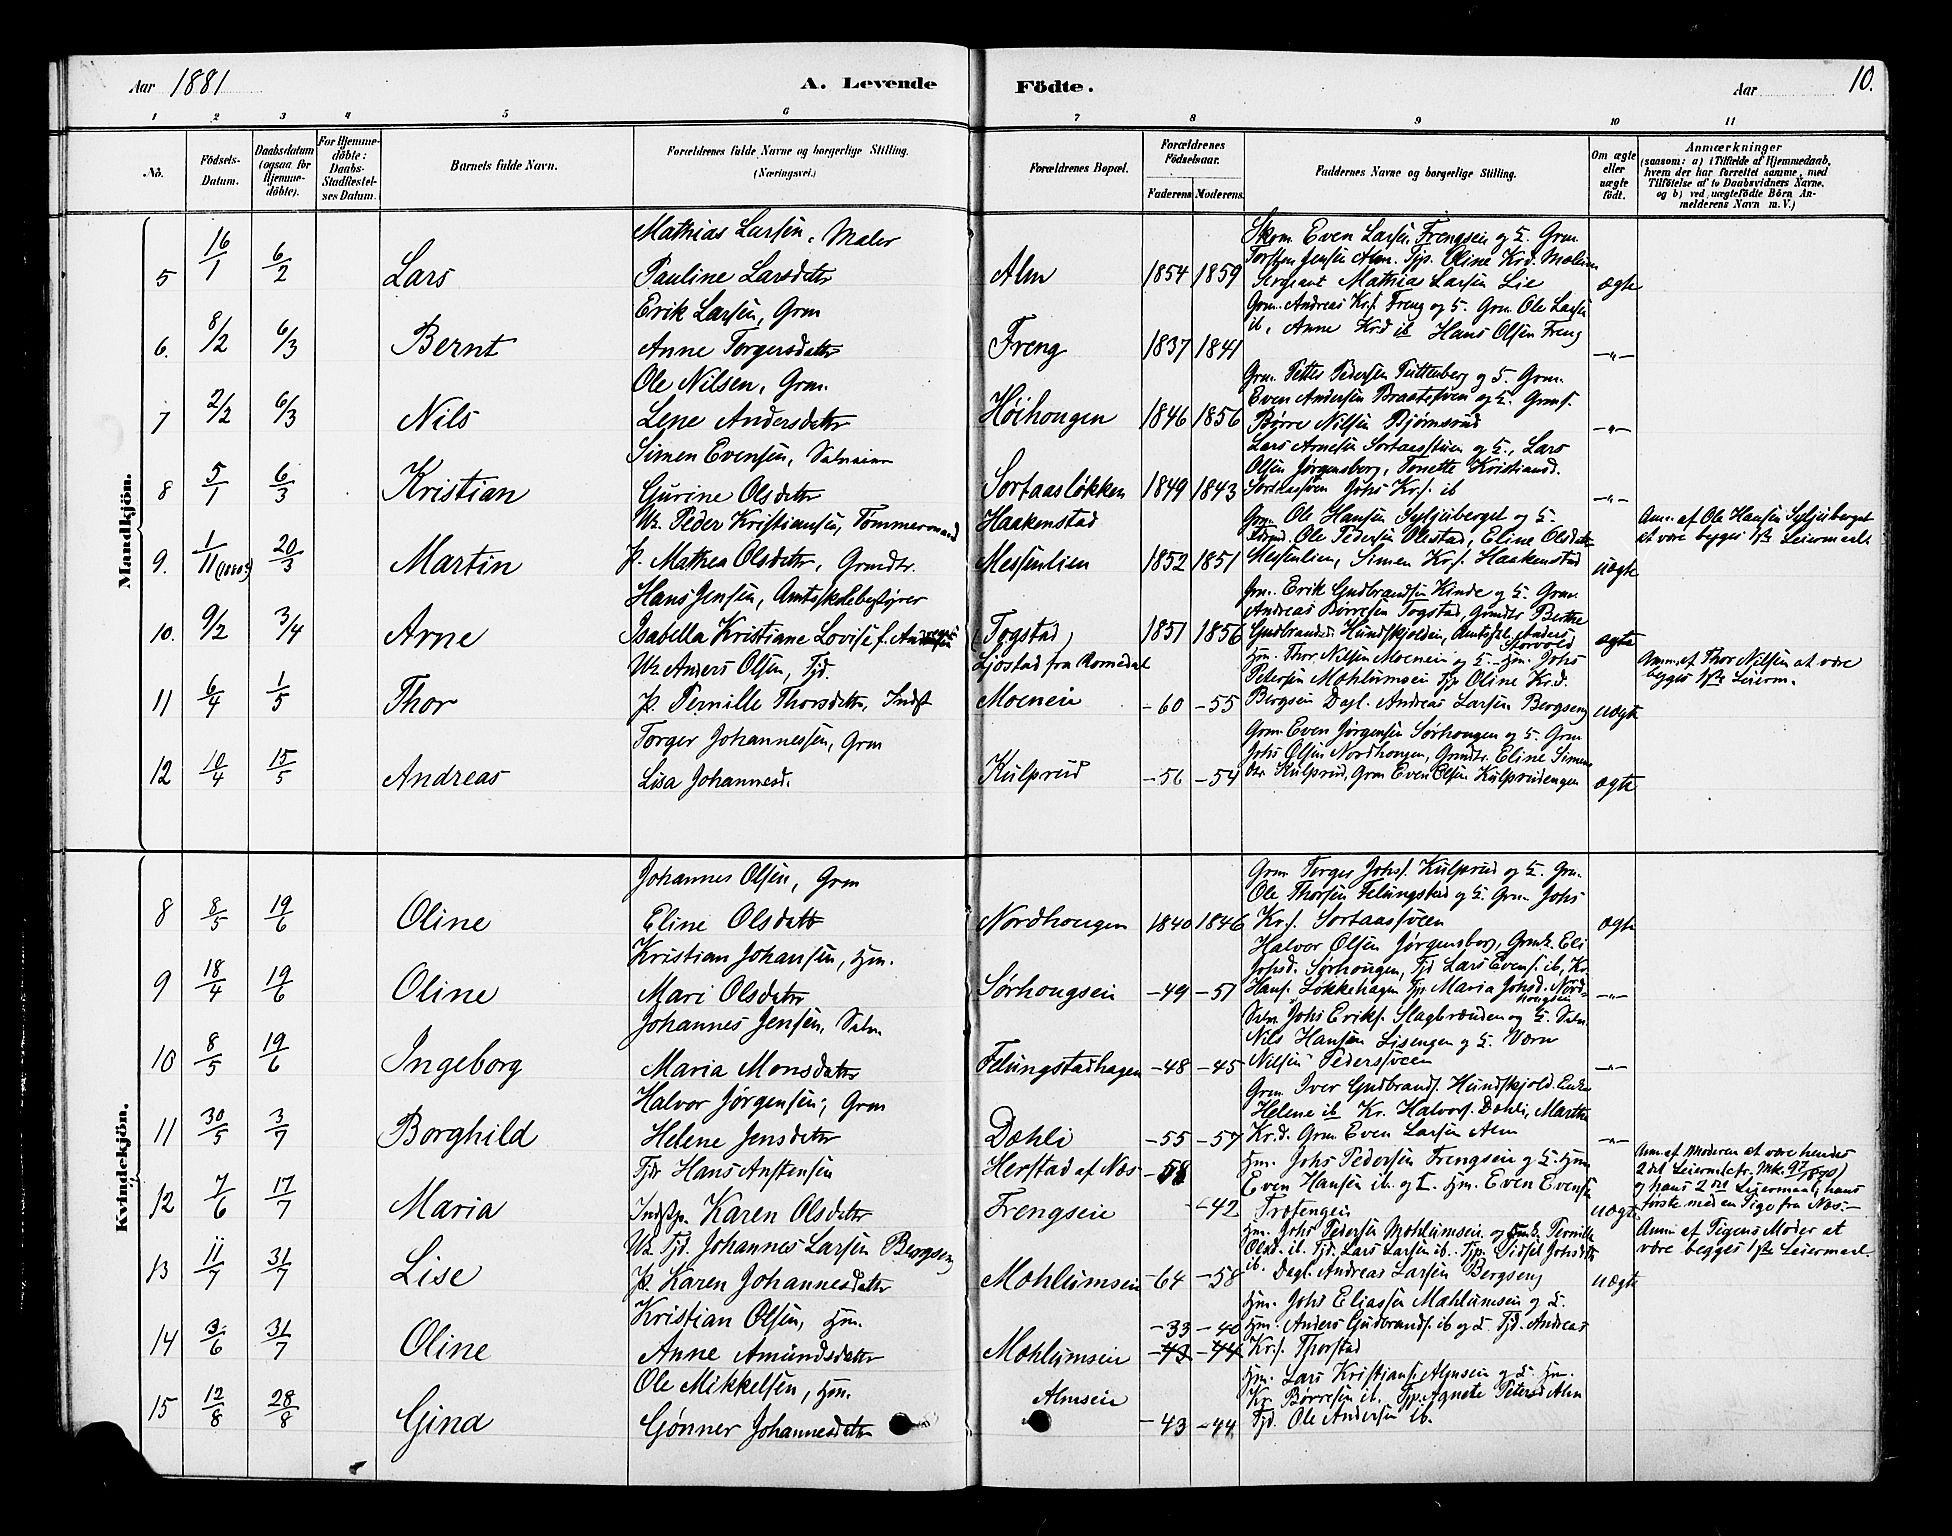 Aar 1881
A. Levende Födte.
Aar
10.
1 2 3 4 5 6 7 8 9 10 11
No.
Födsels-Datum.
Daabsdatum (ogsaa for Hjemmedöbte).
For Hjemmedöbte: Daabs-Stadfestelses Datum.
Barnets fulde Navn.
Forældrenes fulde Navne og borgerlige Stilling. (Næringsvei.)
Forældrenes Bopæl.
Forældrenes Födselsaar.
Faderens. Moderens.
Faddernes Navne og borgerlige Stilling.
Om ægte eller uægte födt.
Anmærkninger (saasom: a) i Tilfælde af Hjemmedaab, hvem der har forrettet samme, med Tilföielse af to Daabsvidners Navne, og b) ved uægtefödte Börn Anmelderens Navn m. V.)
Mandkjön.
5 16/1 6/2 Lars
Mathias Larsen, Maler
Pauline Larsdatter
Alm 1854 1859
Skom. Even Larsen Frengsein og H. Grm.
Torsten Jensen Alm. Pp. Oline Krd. Mælum
Sergeant Mathia Larsen Lie
ægte
6. 8/2 6/3 Bernt
Erik Larsen, Grm
Anne Torgersdatter
Freng 1837 1841
Grm. Andreas Krs. Freng og H. Grm Ole Larsen
ib, Anne Krd ib Hans Olsen Freng
-"-
7 2/2 6/3 Nils
Ole Nilsen, Grm.
Lene Andersdatter
Höihougen 1846 1856
Grm. Petter Pedersen Puttenberg og H. Grm.
Even Andersen Braatesveen og H. Grms.
Börre Nilsen Bjørnsrud
-"-
8 5/1 6/3 Kristian
Simen Evensen, Selveier
Gurine Olsdatter
Sortaasløkken 1849 1843
Lars Arnesen Sortaasstuen og H., Lars
Olsen Jørgensberg, Tonette Kristiansd.
Sortaasveen Johs Krs. ib
-"-
9. 1/11 (1880) 20/3 Martin
Uk. Peder Kristiansen, Tömmermand
P. Mathea Olsdatter, Grmdtr.
Haakenstad
Messenlien 1852 1851
Grm. Ole Hansen Syljuberget og H.
Ole Pedersen Olestad, Eline Olsdatter
Messenlien, Simen Krs. Haakenstad
uægte
Anm. af Ole Hansen Syljuberget
at være begges 1ste Leiermaal.
10. 9/2 3/4 Arne
Hans Jensen, Amtsskolebestyrer
Isabella Kristiane Lovise f.
(Togstad) 1851 1856
Grm. Erik Gudbrandsen Kinde og H. Grm.
Andreas Börresen Togstad, Grmdtr Berthe
Gudbrandsd Hundskjolden, Amtsskl. Anders Storvold
ægte
11 6/4 1/5 Thor
Uk Anders Olsen, Tjd.
P. Pernille Thorsdatter, Indst
Ljostad fra Romedal
Moeneie -60 -55
Hm. Thor Nilsen Moeneie og H. Hm. Johs
Petersen Mæhlumseie Pp Oline Kr.d.
Bergseie Dagl. Andreas Larsen Bergseng
uægte
Anm. af Thor Nilsen at være
begges 1ste Leierm.
12 10/4 15/5 Andreas
Torger Johannessen, Grm
Lisa Johannesd.
Kulprud -56 -54
Grm Even Jørgensen Sørhougen og H. Grm
Johs Olsen Nordhougen, Grmdtr. Eline Simens
dtr Kulprud, Grm Even Olsen Kulprudengen
ægte
Kvindekjön.
8 8/5 19/6 Oline
Johannes Olsen, Grm
Eline Olsdatter
Nordhougen 1840 1846
Grm Torger Johs. Kulprud og H. Grm.
Ole Thorsen Felungstad og H. Grm Johs
Krs. Sortaasveen
ægte
9 18/4 19/6 Oline
Kristian Johansen, Hm.
Mari Olsdatter
Sørhougseie -49 -51
Halvor Olsen Jørgensberg, Grmk. Eli
Johsd. Sørhougen, Tjd Lars Evens. ib, Kr.
Hans. Løkkehagen Pp Maria Johsd. Nordhougseie
-"-
10 8/5 19/6 Ingeborg
Johannes Jensen, Selv.
Maria Monsdatter
Felungstadhagen -48 -45
Selv. Johs Eriks. Slagbrænden og H. Selv.
Nils Hansen Lisengen og H. Værn
Nilsen Pedersveen
-"-
11 30/5 3/7 Borghild
Halvor Jørgensen, Grm
Helene Jensdatter
Dæhli -55 -57
Grm Iver Gudbrands. Hundskjold. Enke
Helene ib Kr. Halvors. Dæhli, Marthe
Kr.d. Grm Even Larsen Alm
-"-
12 7/6 17/7 Maria
Tjdr Hans Anstensen
Indstp. Karen Olsdatter
Herstad af Næs -58
Frengseie -42
Hm. Johs Pedersen Frengseie og H. Hm
Even Hansen ib. og H. Hm. Even Evensen
Frøsengen
uægte
Anm. af Moderen at være hendes
2det Leierm (cfr. Mk. 97/1880)
og hans 2det Leiermaal, hans
første med en Pige fra Næs.-
13 11/7 31/7 Lise
Uk Tjd. Johannes Larsen Bergseng
P. Karen Johannesdatter
Mæhlumseie -64 -58
Hm. Johs Pedersen Mæhlumseie og Pernille
Olsd. ib. Tjd. Lars Larsen ib. Pp. Sidsel Johsdtr
ib. Dagl. Andreas Larsen Bergseng
uægte
Anm. af Pigens Moder at
være begges 1ste Leiermaal.
14 3/6 31/7 Oline
Kristian Olsen, Hm.
Anne Amundsdatter
Mæhlumseie
-33 -40
-43 -44
Hm. Johs Eliassen Mæhlumseie og H.
Hm. Anders Gudbrands. ib og H Tjd. Andreas
Krs. Thorstad
15 12/8 28/8 Gina
Ole Mikkelsen, Hm.
Gönner Johannesdatter
Almseie
-43 -44
Hm. Lars Kristians. Almseie og H. Hm.
Kr. Börresen ib. Pp. Agnete Petersd Alm
Tjd. Ole Andersen ib.